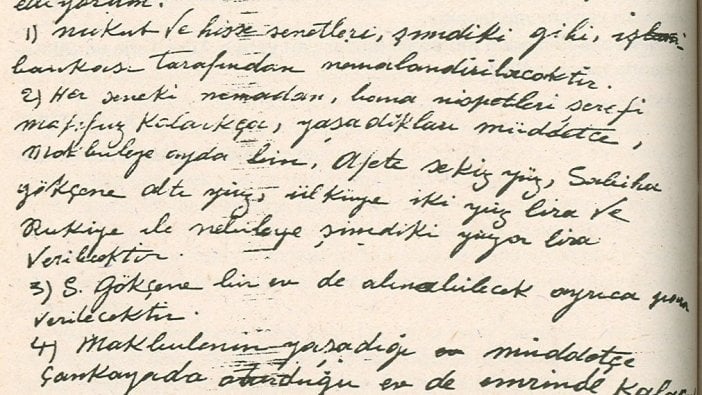 ediyorum.
1) nukut ve hisse senetleri, şimdiki gibi, iş
bankası tarafından nemalandırılacaktır.
2) Her seneki nemadan, bana nispetleri şerefi
mahfuz kaldıkça, yaşadıkları müddetçe,
Makbuleye ayda bin, Afete sekiz yüz, Sabiha
gökçene altı yüz, ülküye iki yüz lira ve
Rukiye ile nebileye şimdiki yüzer lira
verilecektir.
3) S. Gökçene bir ev de alınabilecek ayrıca para
verilecektir.
4) Makbulenin yaşadığı müddetçe
Çankayada oturduğu ev de emrinde kalac